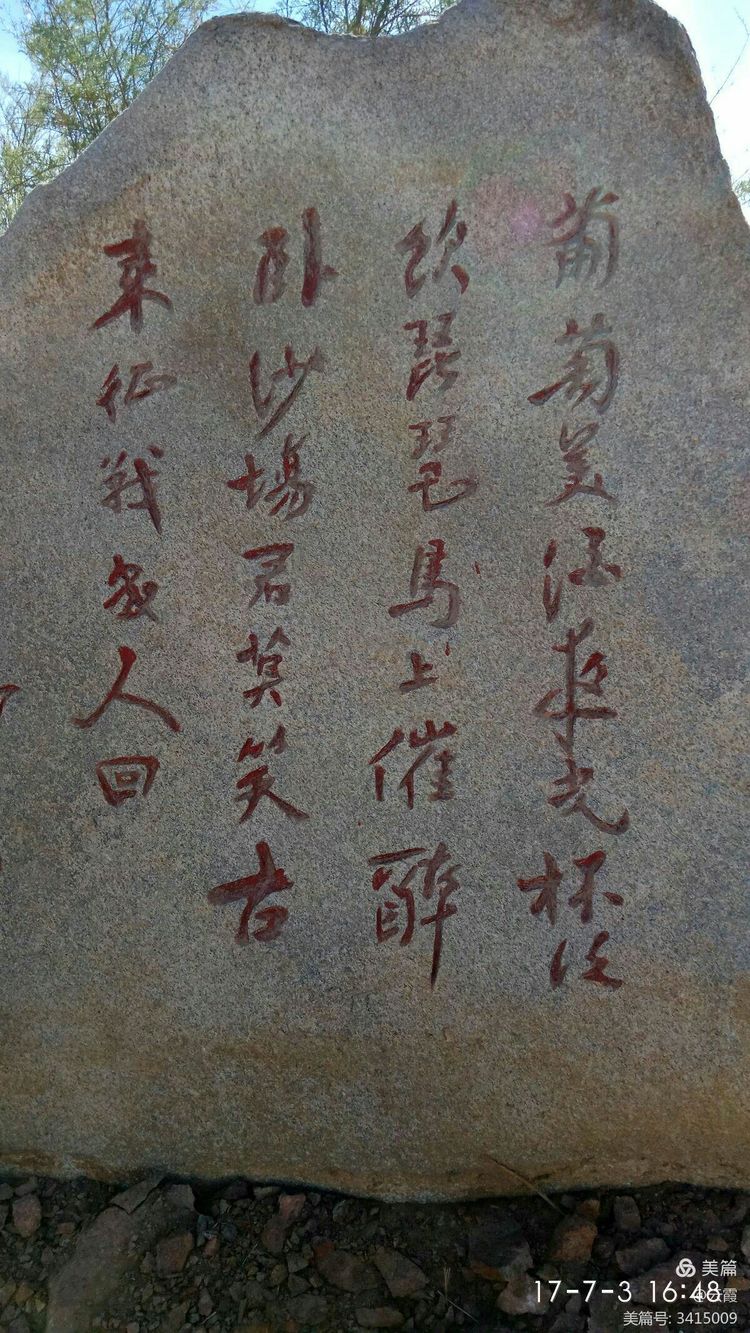 葡萄美酒夜光杯欲
飲琵琶馬上催醉
卧沙場君莫笑古
来征戰幾人回
美篇
17-7-3 16:48
美篇号: 3415009